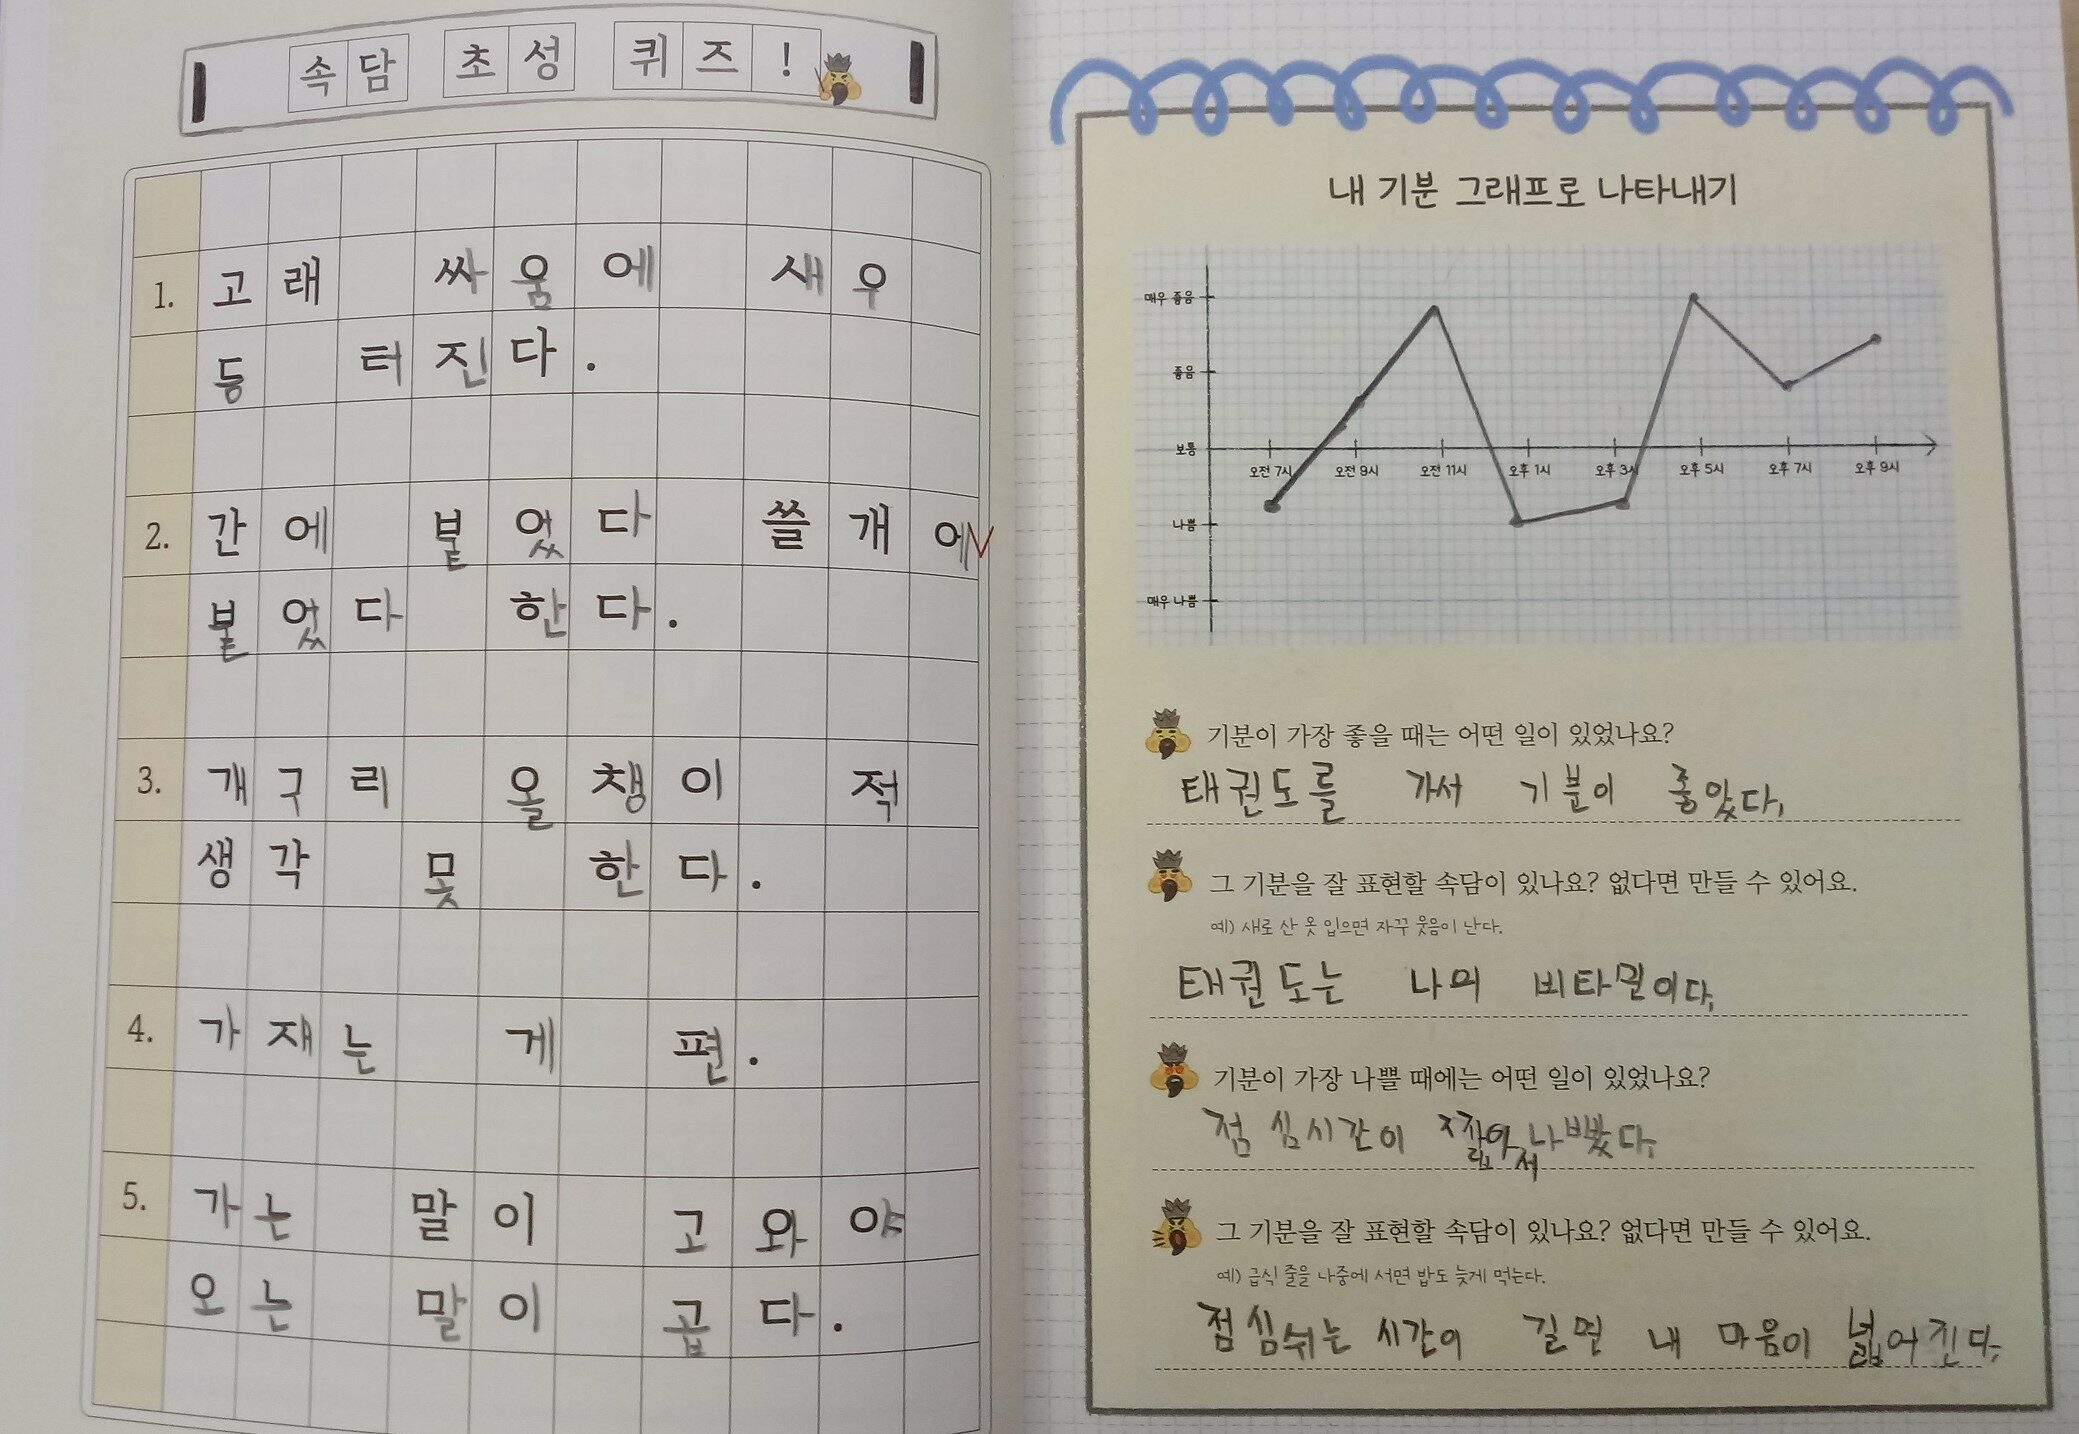 속담 초성 퀴즈!
1. 고래 싸움에 새우
등 터진다.
2. 간에 붙었다 쓸개에
붙었다 한다.
3. 개구리 올챙이 적
생각 못 한다.
4. 가재는 게 편.
5. 가는 말이 고와야
오는 말이 곱다.
내 기분 그래프로 나타내기
매우 좋음
좋음
보통
오전 7시 오전 9시 오전 11시 오후 1시 오후 3시 오후 5시 오후 7시 오후 9시
나쁨
매우 나쁨
기분이 가장 좋을 때는 어떤 일이 있었나요?
태권도를 가서 기분이 좋았다.
그 기분을 잘 표현할 속담이 있나요? 없다면 만들 수 있어요.
예) 새로 산 옷 입으면 자꾸 웃음이 난다.
태권도는 나의 비타민이다.
기분이 가장 나쁠 때에는 어떤 일이 있었나요?
점심시간이 짧아서 나빴다.
그 기분을 잘 표현할 속담이 있나요? 없다면 만들 수 있어요.
예) 급식 줄을 나중에 서면 밥도 늦게 먹는다.
점심쉬는 시간이 길면 내 마음이 넓어진다.